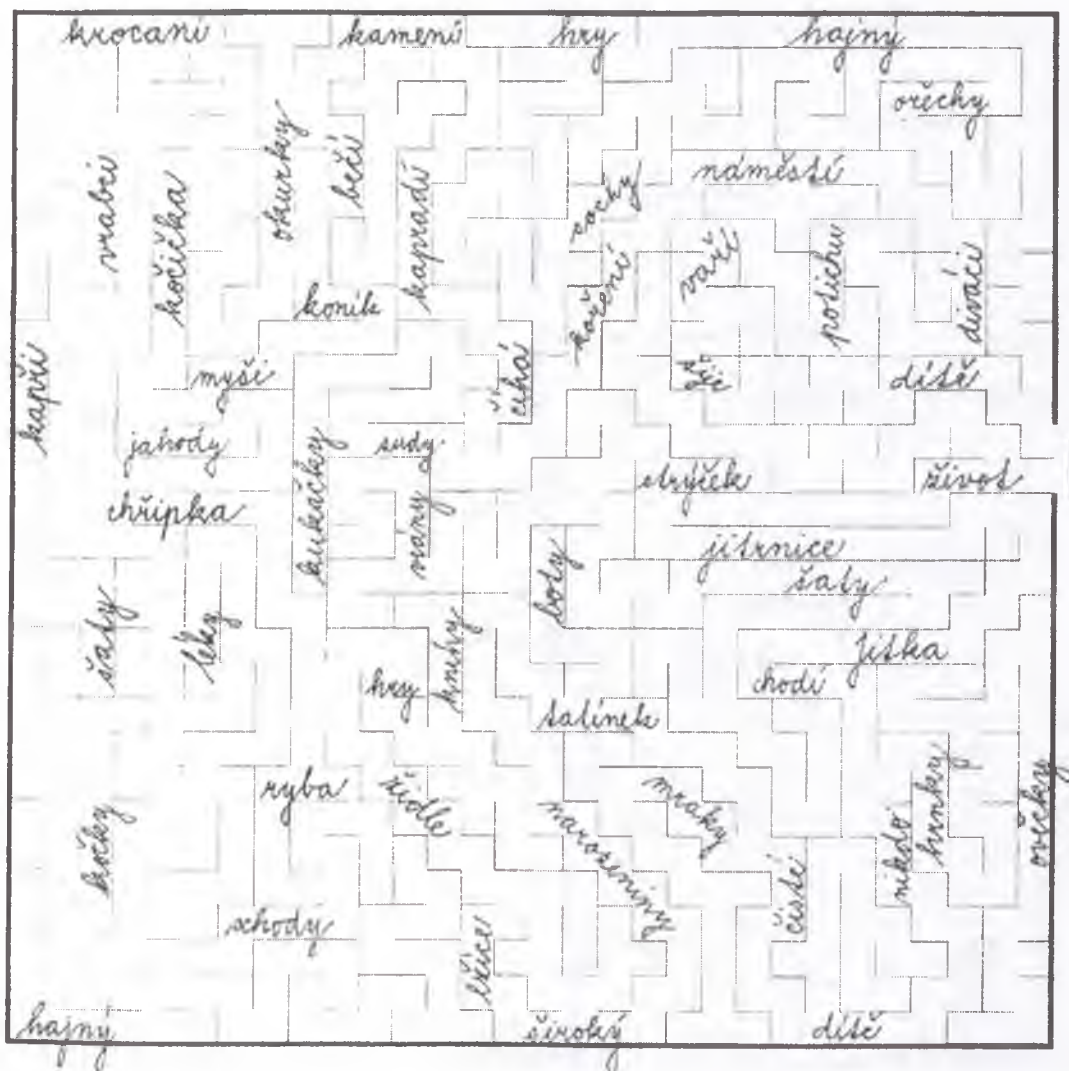 krocani
kamení
hry
hajný
ořechy
vrabci
kočička
okurky
bečí
kapradí
náměstí
sochy
koření
vaří
potichu
diváci
koník
kapři
myši
číhá
šije
dítě
jahody
kukačky
sudy
strýček
život
chřipka
vrány
boty
jitrnice
šaty
šaty
léky
knihy
Jitka
hry
chodí
talínek
ryba
židle
mraky
narozeniny
nikdo
hrnky
ovečky
kočky
čisté
schody
lžíce
hajný
široký
dítě